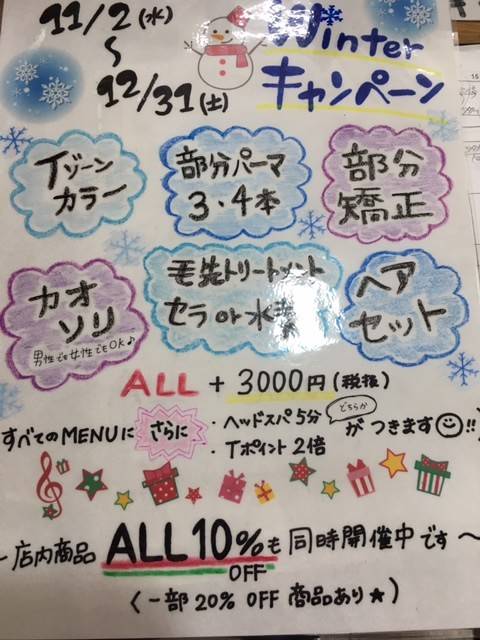 11/2(水)
〜
12/31(土)
Winter
キャンペーン
Tゾーン
カラー
部分パーマ
3・4本
部分
矯正
カオ
ソリ
男性でも女性でもOK♪
毛先トリートメント
セラ or 水素
ヘア
セット
ALL + 3000円(税抜)
すべてのMENUに さらに
・ヘッドスパ5分
・Tポイント2倍
どちらか
がつきます☺!!
〜店内商品 ALL10%も同時開催中です〜
OFF
〈一部20% OFF 商品あり★〉
15